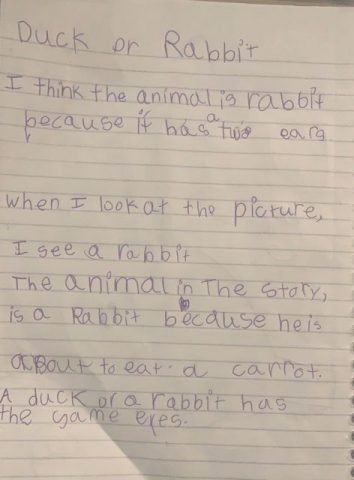 Duck or Rabbit
I think the animal is rabbit
because it has a two ears
when I look at the picture,
I see a rabbit
The animal in The story,
is a Rabbit because he is
about to eat a carrot.
A duck or a rabbit has
the same eyes.